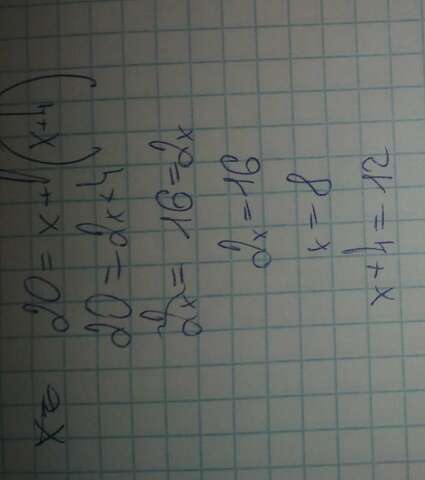 x= 20 = x + (x+4)
20 = 2x+4
2x= 16=2x
2x=16
x=8
x+4=12